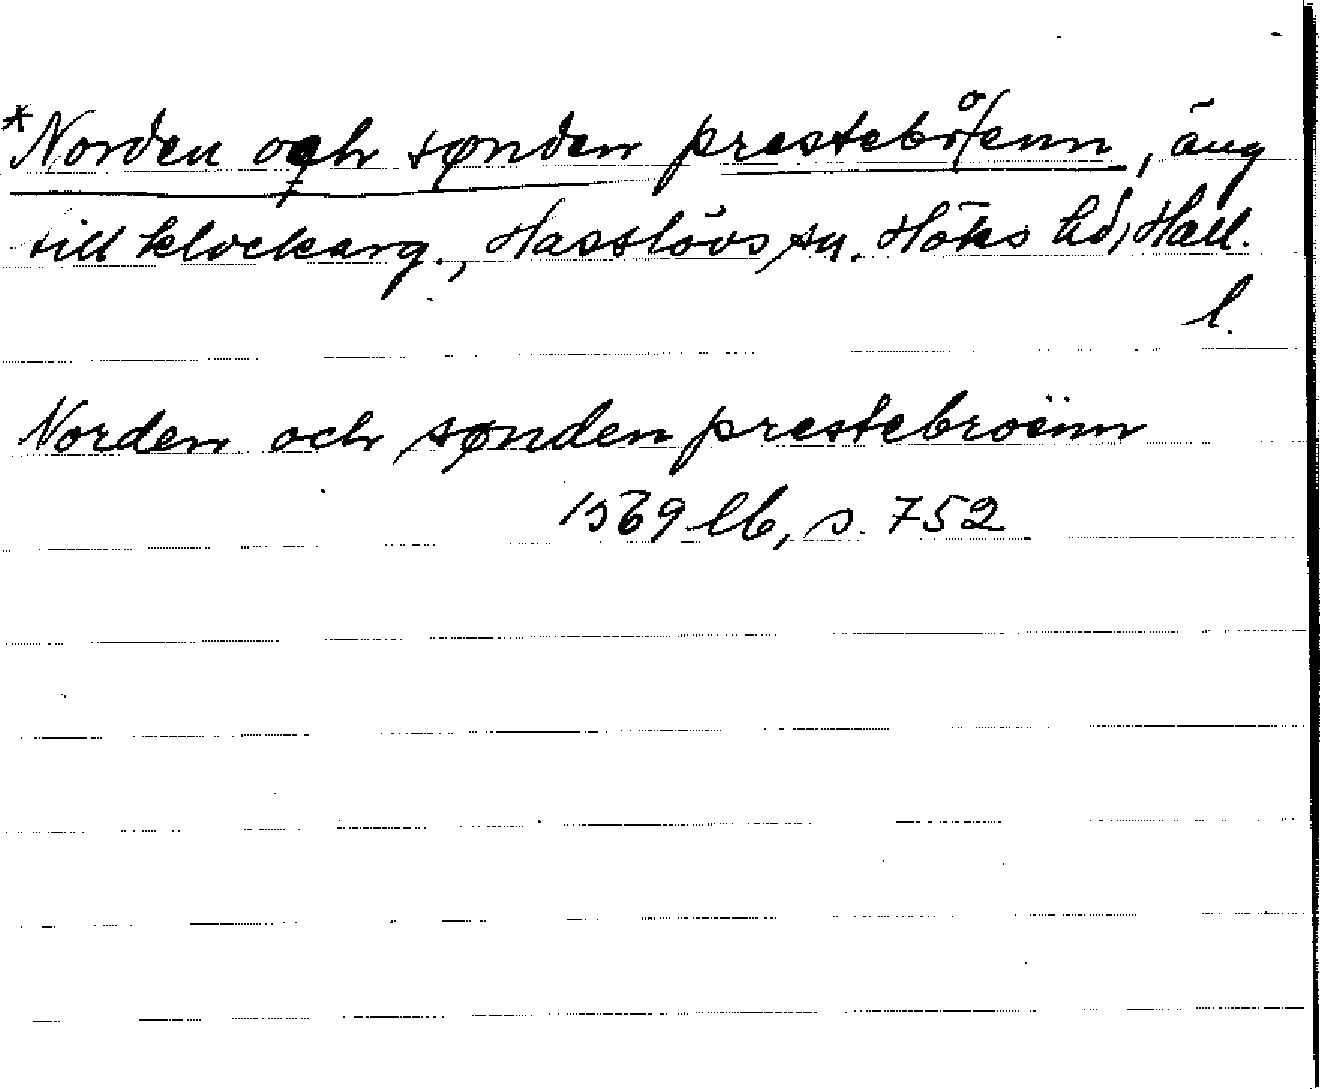 *Norden och sønden prestebroenn, äng
till klockarg., Hasslövs sn. Höks hd, Hall.
l.
Norden och sønden prestebroënn
1569 lb, s. 752